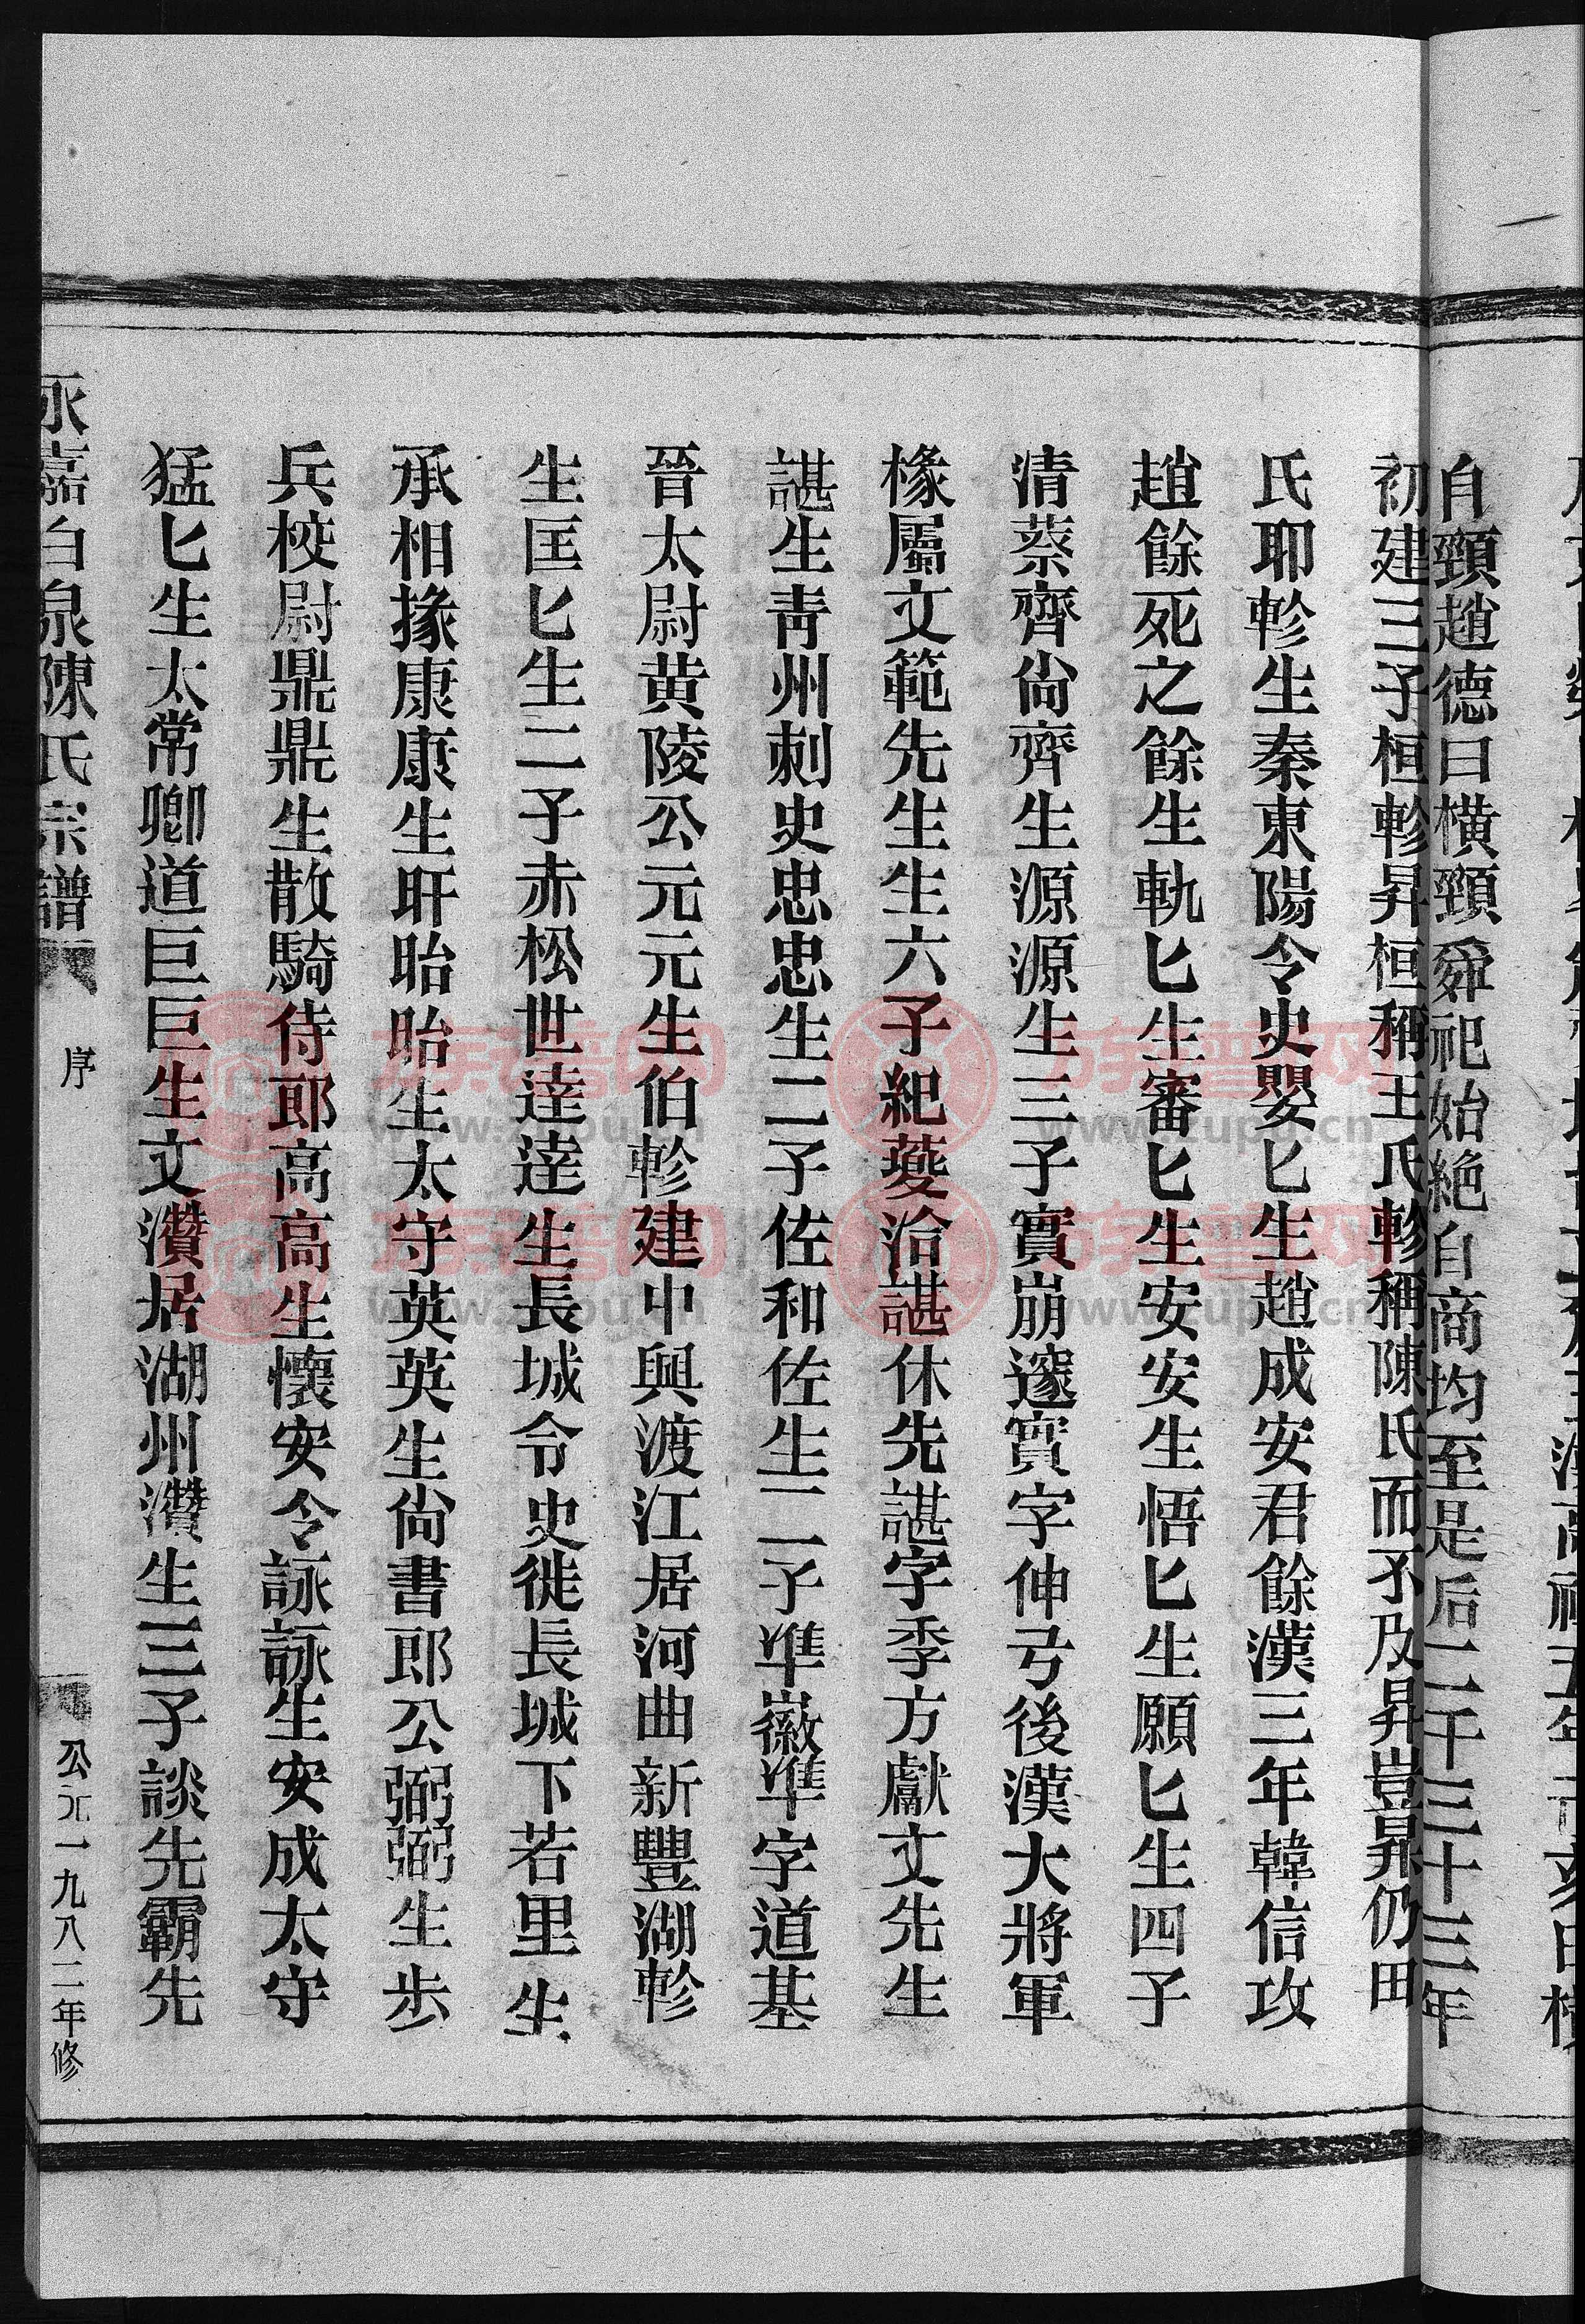 自頸趙德曰横頸舜祀始絶自商均至是后二千三十三年
初建三子桓軫昇桓稱王氏軫稱陳氏而不及昇豈昇仍田
氏耶軫生秦東陽令史嬰匕生趙成安君餘漢三年韓信攻
趙餘死之餘生軌匕生審匕生安安生悟匕生願匕生四子
清蔡齊尙齊生源源生三子實崩邃實字伸弓後漢大將軍
椽屬文範先生生六子紀蘷洽諶休先諶字季方獻文先生
諶生靑州刺史忠忠生二子佐和佐生二子準徽準字道基
晉太尉黄陵公元元生伯軫建中興渡江居河曲新豐湖軫
生匡匕生二子赤松世逹逹生長城令史徙長城下若里生
承相掾康康生盱眙眙生太守英英生尙書郎公弼弼生步
兵校尉鼎鼎生散騎侍郎高高生懷安令詠詠生安成太守
猛匕生太常卿道巨巨生文瓚居湖州瓚生三子談先霸先
永嘉白泉陳氏宗譜
序
公元一九八二年修
族谱网
www.zupu.cn
族谱网
www.zupu.cn
族谱网
www.zupu.cn
族谱网
www.zupu.cn